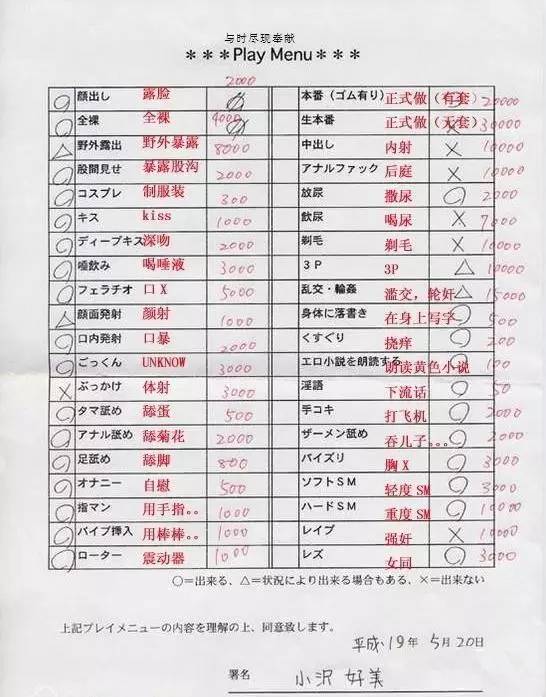 与时尽现奉献
＊＊＊Play Menu＊＊＊
2000
顔出し 露脸 本番（ゴム有り） 正式做（有套） 20000
全裸 全裸 4000 生本番 正式做（无套） × 30000
△ 野外露出 野外暴露 8000 中出し 内射 × 10000
○ 股間見せ 暴露股沟 2000 アナルファック 后庭 × 10000
○ コスプレ 制服装 300 放尿 撒尿 ○ 2000
○ キス kiss 1000 飲尿 喝尿 × 7000
○ ディープキス 深吻 2000 剃毛 剃毛 × 10000
○ 唾飲み 喝唾液 3000 ３Ｐ 3P △ 10000
○ フェラチオ 口X 5000 乱交・輪姦 滥交，轮奸 △ 15000
△ 顔面発射 颜射 1000 身体に落書き 在身上写字 ○ 500
○ 口内発射 口暴 2000 くすぐり 挠痒 ○ 200
○ ごっくん UNKNOW 3000 エロ小説を朗読する 朗读黄色小说 100
× ぶっかけ 体射 3000 淫語 下流话 ○ 50
○ タマ舐め 舔蛋 500 手コキ 打飞机 ○ 2000
○ アナル舐め 舔菊花 2000 ザーメン舐め 吞儿子。。。 ○ 2000
○ 足舐め 舔脚 800 パイズリ 胸X ○ 3000
○ オナニー 自慰 500 ソフトＳＭ 轻度SM ○ 3000
○ 指マン 用手指。。 1000 ハードＳＭ 重度SM ○ 10000
○ バイブ挿入 用棒棒。。 1000 レイプ 强奸 × 10000
○ ローター 震动器 1000 レズ 女同 ○ 3000
○＝出来る、△＝状況により出来る場合もある、×＝出来ない
上記プレイメニューの内容を理解の上、同意致します。
平成19年 5月20日
署名 小沢 好美